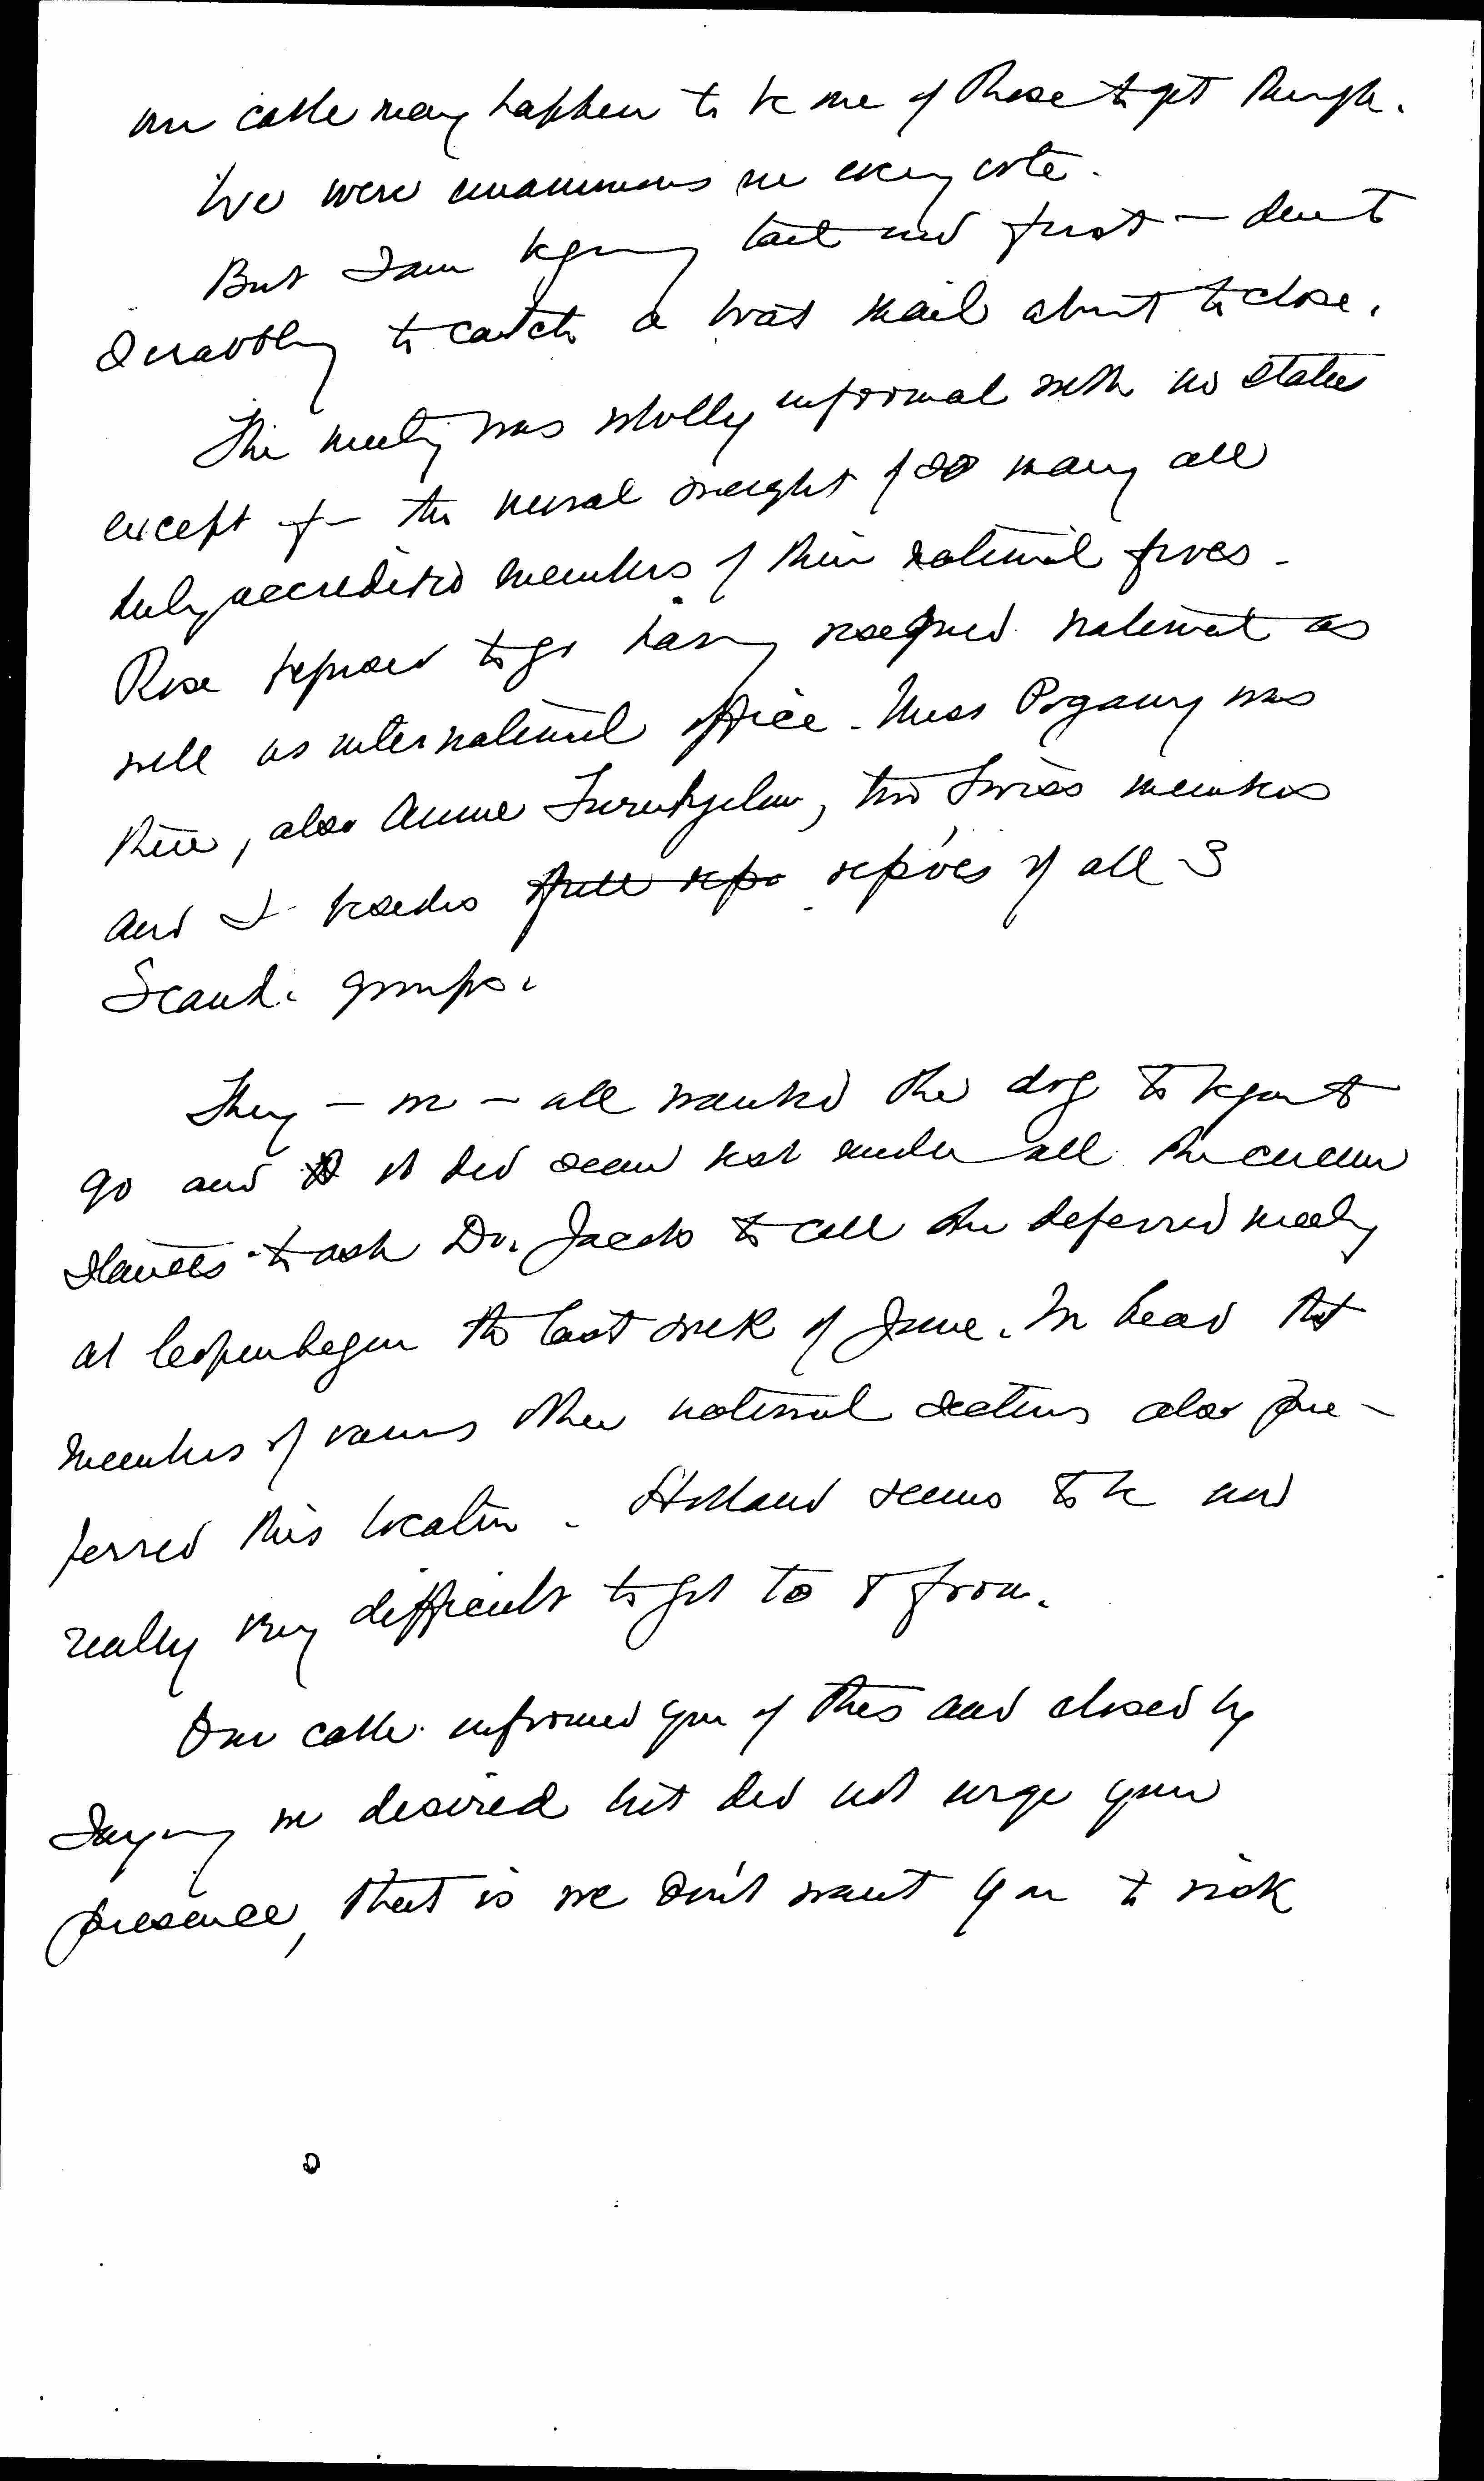 our cable may happen to be one of those to get through.
We were unanimous on every vote.
But I am beginning tail end first — due to
scrabbling to catch a boat mail about to close.
The meeting was wholly informal with no status
except for the moral weight of so many all
duly accredited members of their national
Rose refused to go having resigned national as
well as international office. Miss Pogany was
there, also Anne two Swiss members
and I besides full rep. rep'ves of all 3
Scand. groups.
They — we — all wanted the to
go and it did seem best under all the circum
stances to ask Dr. Jacobs to call the deferred meeting
at Copenhagen the last week of June. We hear that
members of various other national sections also pre-
ferred this location. Holland seems to be now
really very difficult to get to & from.
Our cable informed you of this and closed by
saying we desired but did not urge your
presence, that is we don't want you to risk